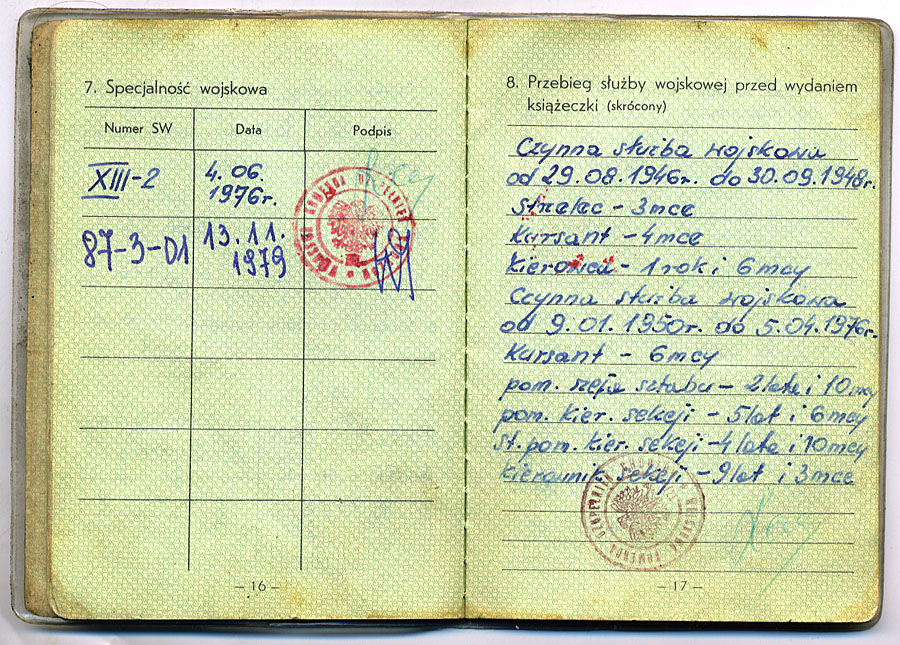 7. Specjalność wojskowa
Numer SW Data Podpis
XIII-2 4.06.
1976r.
87-3-01 13.11.
1979
– 16 –
8. Przebieg służby wojskowej przed wydaniem
książeczki (skrócony)
Czynna służba wojskowa
od 29.08.1946r. do 30.09.1948r.
strzelec – 3 mce
Kursant – 4 mce
Kierowca – 1 rok i 6 mcy
Czynna służba wojskowa
od 9.01.1950r. do 5.04.1976r.
Kursant – 6 mcy
pom. szefa sztabu – 2 lata i 10 mcy
pom. kier. sekcji – 5 lat i 6 mcy
st. pom. kier. sekcji – 4 lata i 10 mcy
kierownik sekcji – 9 lat i 3 mce
WOJSKOWA KOMENDA UZUPEŁNIEŃ
– 17 –